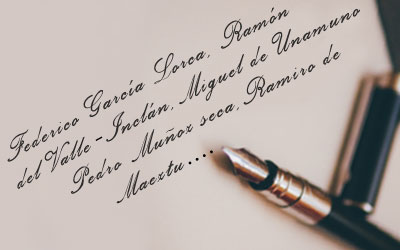 Federico García Lorca, Ramón
del Valle-Inclán, Miguel de Unamuno
Pedro Muñoz seca, Ramiro de
Maeztu....